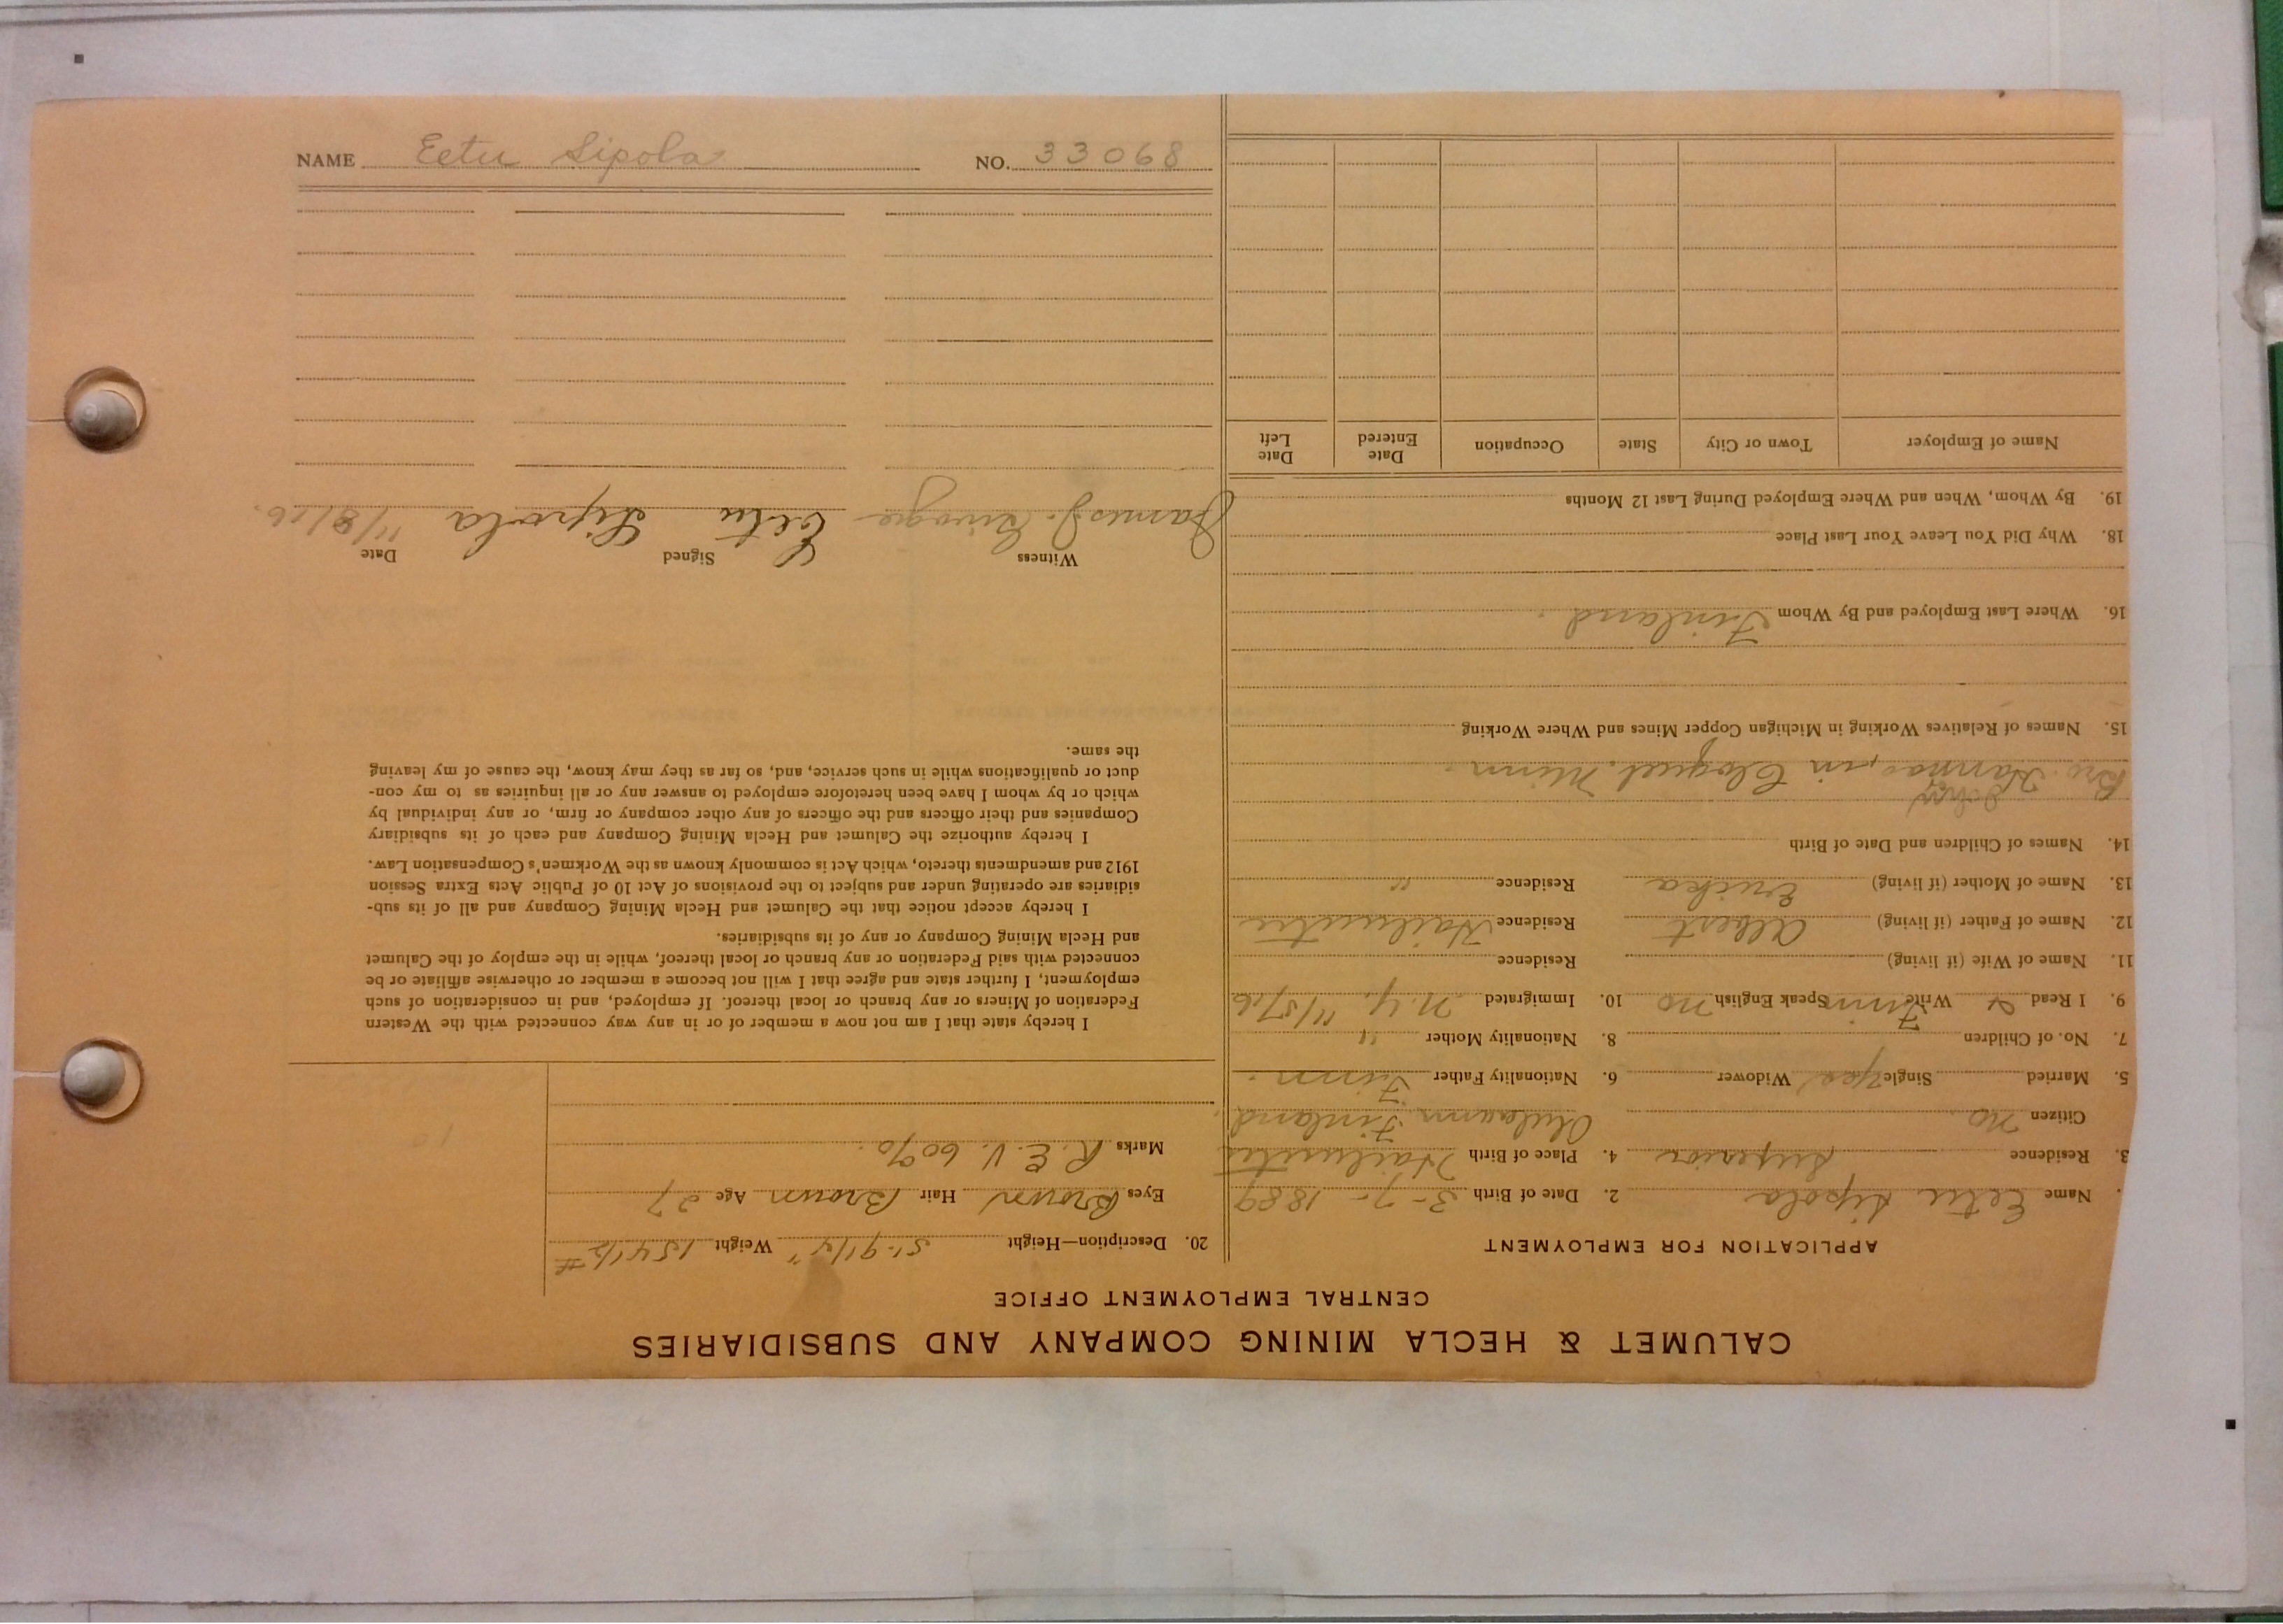 CALUMET & HECLA MINING COMPANY AND SUBSIDIARIES
CENTRAL EMPLOYMENT OFFICE
APPLICATION FOR EMPLOYMENT
Name Eetu Sipola 2. Date of Birth 3-7-1889
3. Residence Superior 4. Place of Birth Hailuoto
Citizen no Finland
5. Married Single yes Widower 6. Nationality Father Finn.
7. No. of Children 8. Nationality Mother "
9. I Read & Write Finn Speak English no 10. Immigrated N.Y. 11/5/16
11. Name of Wife (if living) Residence
12. Name of Father (if living) Albert Residence Hailuoto
13. Name of Mother (if living) Erika Residence "
14. Names of Children and Date of Birth
Bro. Hannes, in Cloquet. Minn.
15. Names of Relatives Working in Michigan Copper Mines and Where Working
16. Where Last Employed and By Whom Finland.
18. Why Did You Leave Your Last Place
19. By Whom, When and Where Employed During Last 12 Months
Name of Employer Town or City State Occupation Date Entered Date Left
20. Description—Height 5'-9 1/4" Weight 154 1/2 #
Eyes Brown Hair Brown Age 27
Marks R.E.V. 60%.
I hereby state that I am not now a member of or in any way connected with the Western
Federation of Miners or any branch or local thereof. If employed, and in consideration of such
employment, I further state and agree that I will not become a member or otherwise affiliate or be
connected with said Federation or any branch or local thereof, while in the employ of the Calumet
and Hecla Mining Company or any of its subsidiaries.
I hereby accept notice that the Calumet and Hecla Mining Company and all of its sub-
sidiaries are operating under and subject to the provisions of Act 10 of Public Acts Extra Session
1912 and amendments thereto, which Act is commonly known as the Workmen's Compensation Law.
I hereby authorize the Calumet and Hecla Mining Company and each of its subsidiary
Companies and their officers and the officers of any other company or firm, or any individual by
which or by whom I have been heretofore employed to answer any or all inquiries as to my con-
duct or qualifications while in such service, and, so far as they may know, the cause of my leaving
the same.
Witness Signed Date
James J. Eetu Sipola 11/8/16.
NAME Eetu Sipola NO. 33068